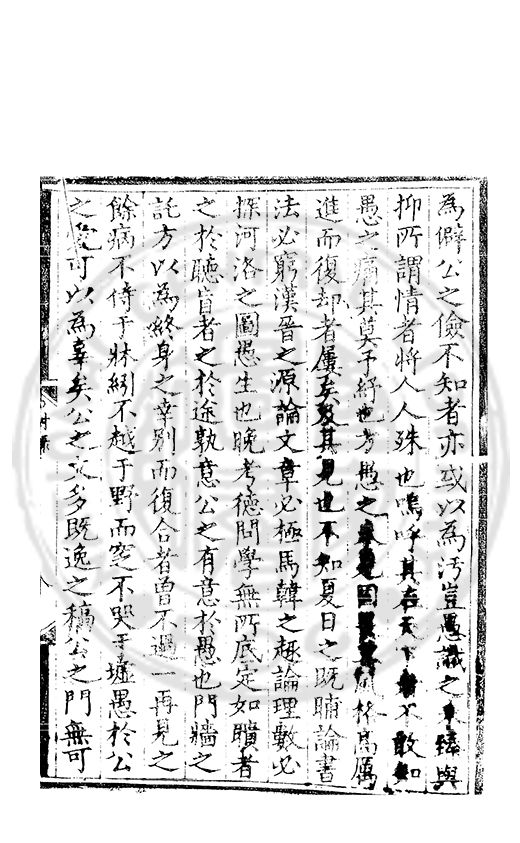 為僻公之儉不知者亦或以為汚豈愚識之未臻與
抑所謂情者將人人殊也嗚呼其在天下者不敢知
愚之痛其莫予紓也方愚之未見因林高厲
進而復却者屢矣及其見也不知夏日之既晡論書
法必窮漢晉之源論文章必極馬韓之趣論理數必
探河洛之圖愚生也晚考德問學無所底定如瞶者
之於聽盲者之於途孰意公之有意於愚也門牆之
託方以為終身之幸別而復合者曾不過一再見之
餘病不侍于牀紼不越于野而窆不哭于墟愚於公
之愛可以為辜矣公之文多既逸之稿公之門無可